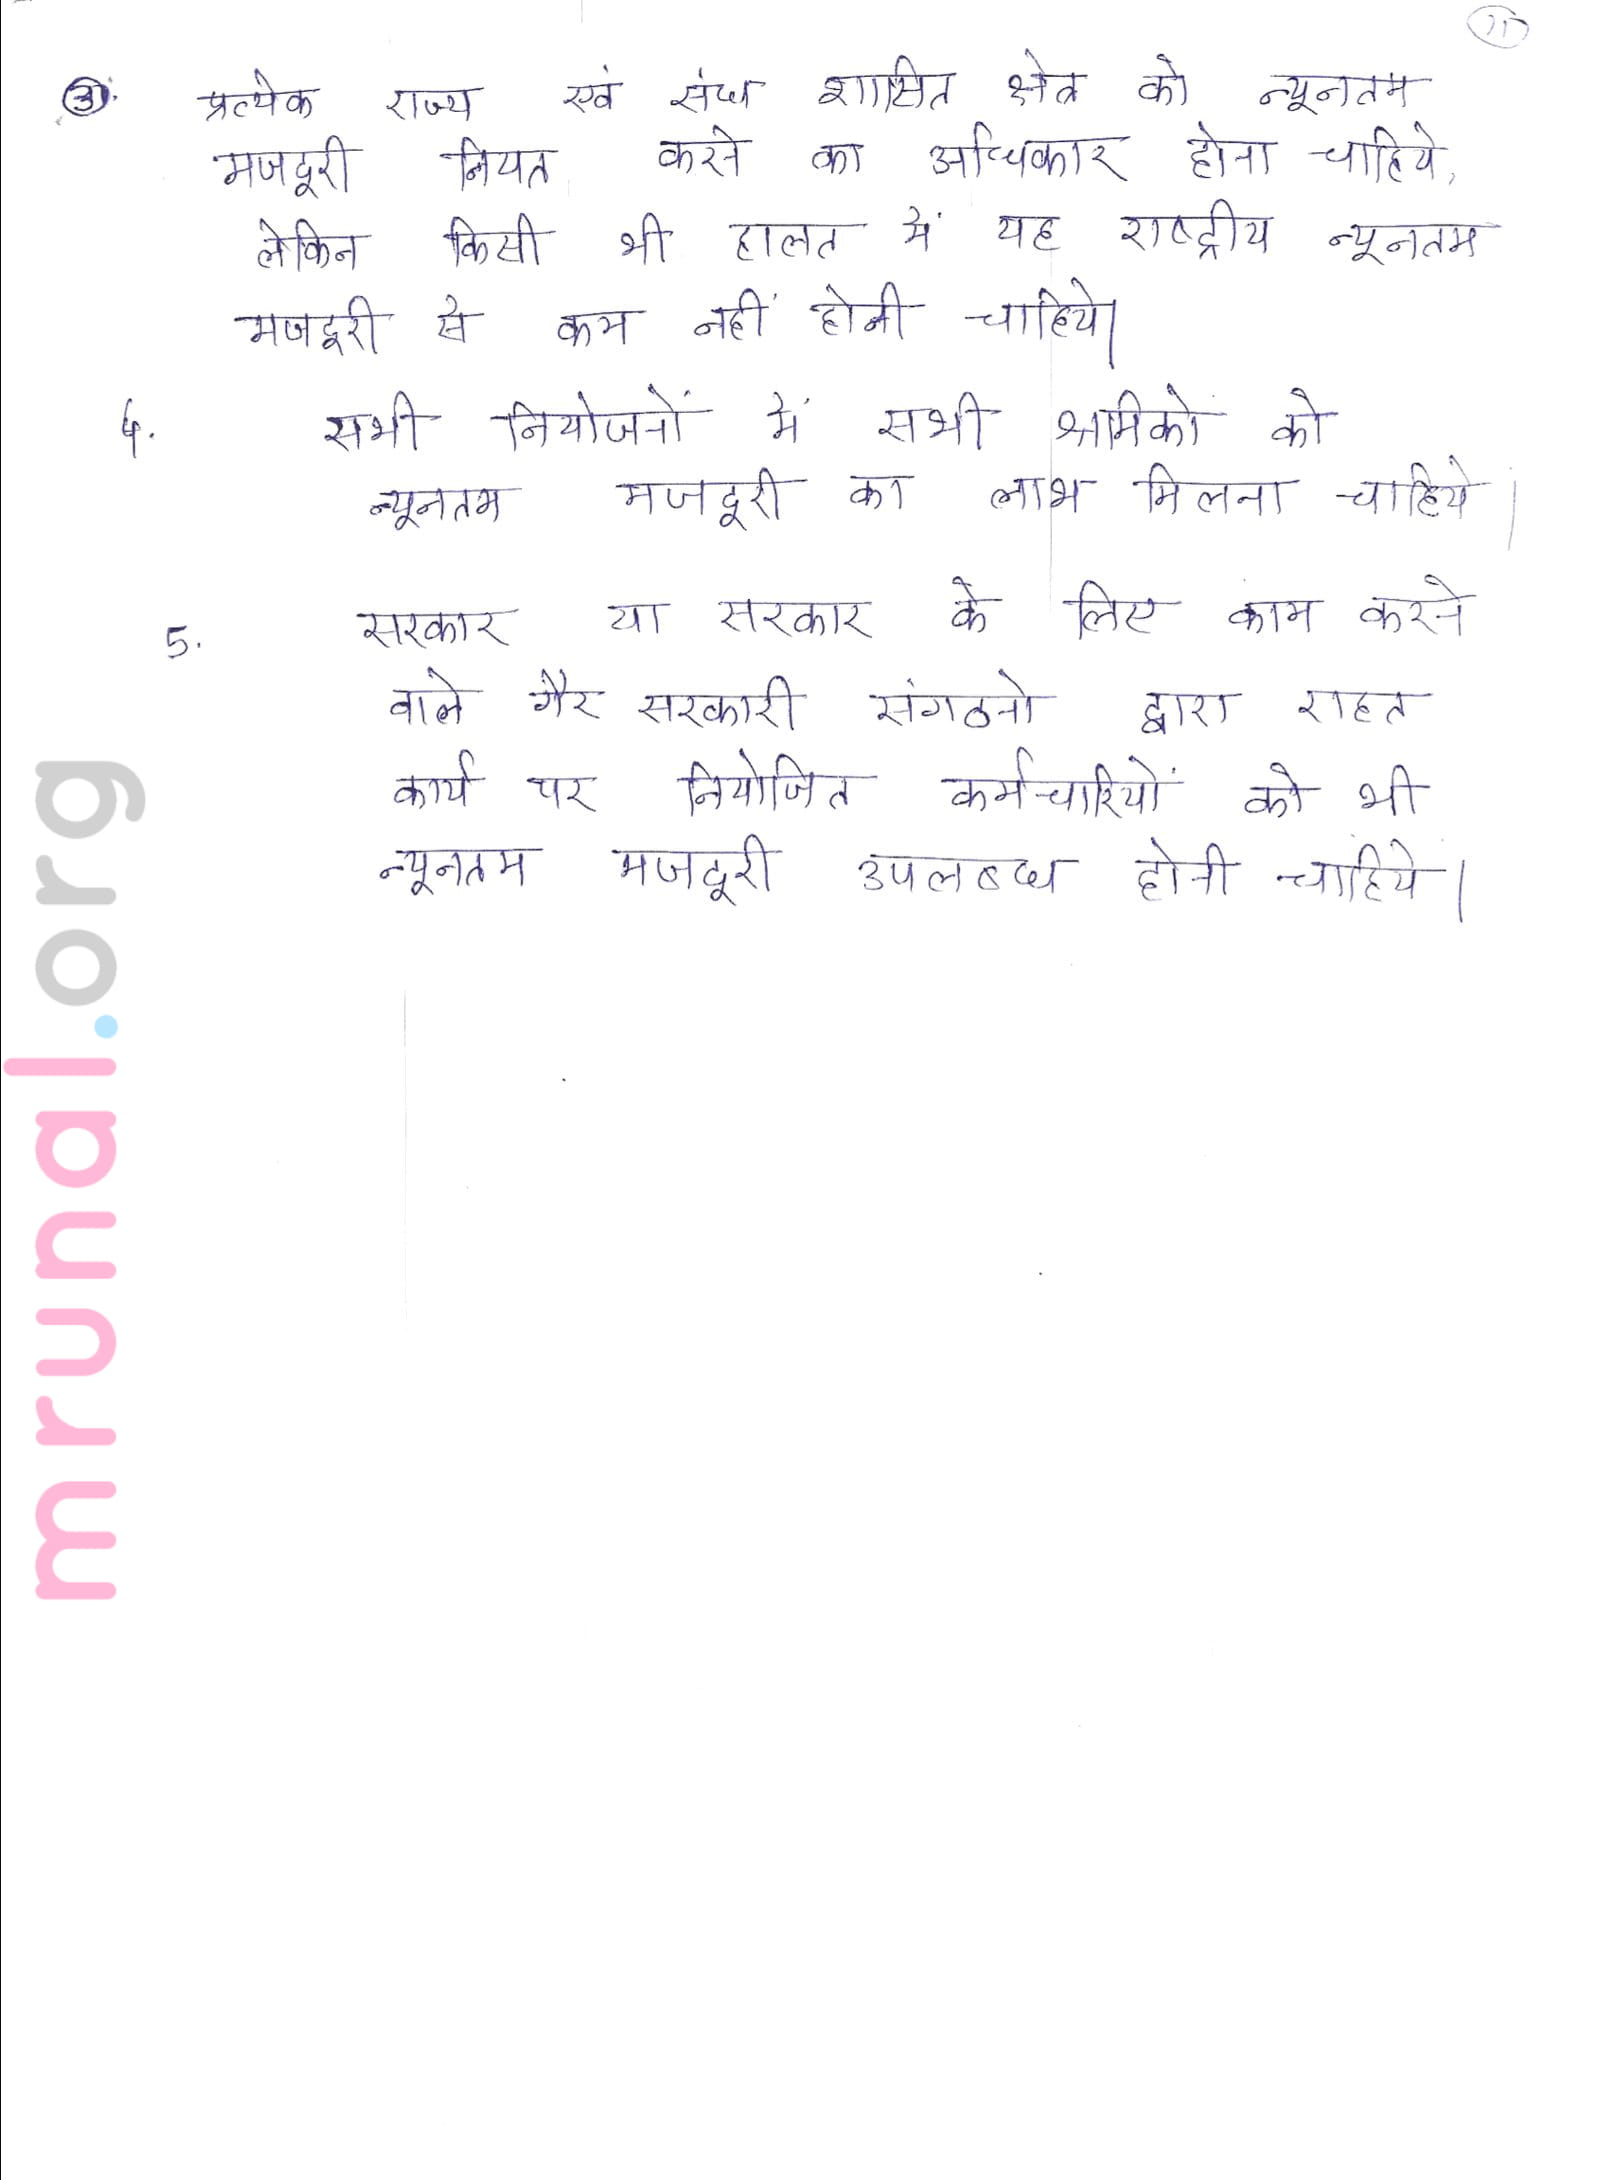 ③. प्रत्येक राज्य एवं संघ शासित क्षेत्र को न्यूनतम
मजदूरी नियत करने का अधिकार होना चाहिये,
लेकिन किसी भी हालत में यह राष्ट्रीय न्यूनतम
मजदूरी से कम नहीं होनी चाहिये।
4. सभी नियोजनों में सभी श्रमिकों को
न्यूनतम मजदूरी का लाभ मिलना चाहिये।
5. सरकार या सरकार के लिए काम करने
वाले गैर सरकारी संगठनो द्वारा राहत
कार्य पर नियोजित कर्मचारियों को भी
न्यूनतम मजदूरी उपलब्ध होनी चाहिये।
mrunal.org